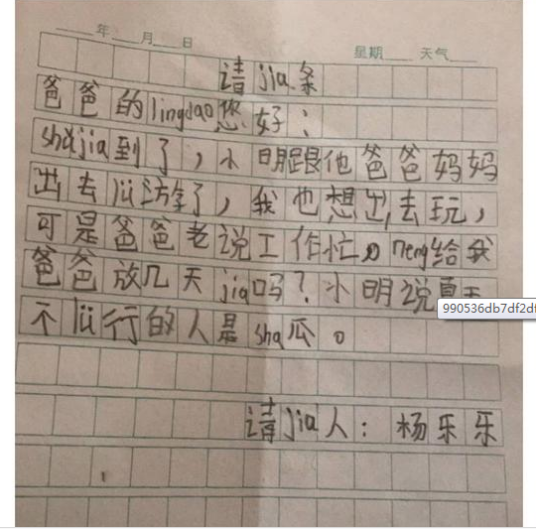 年 月 日
星期 天气
请jia条
爸爸的lingdao您好:
shǔjia到了,小明跟他爸爸妈妈
出去lü游了,我也想出去玩,
可是爸爸老说工作忙,neng给我
爸爸放几天jia吗?小明说夏天
不lü行的人是sha瓜。
请jia人:杨乐乐
990536db7df2d